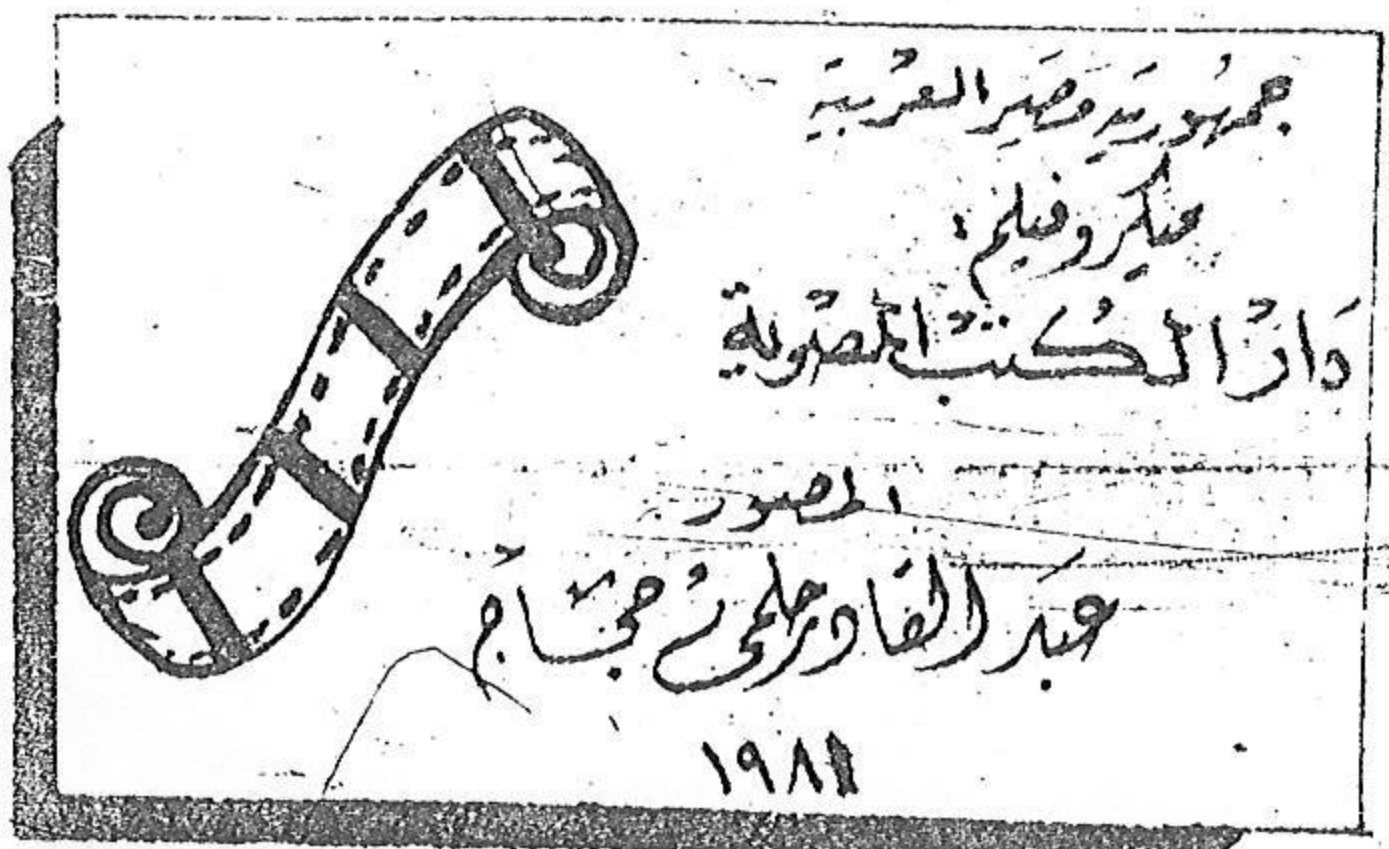 جمهورية مصر العربية
ميكروفيلم
دار الكتب المصرية
المصور
عبد القادر حلمي حجاج
١٩٨١